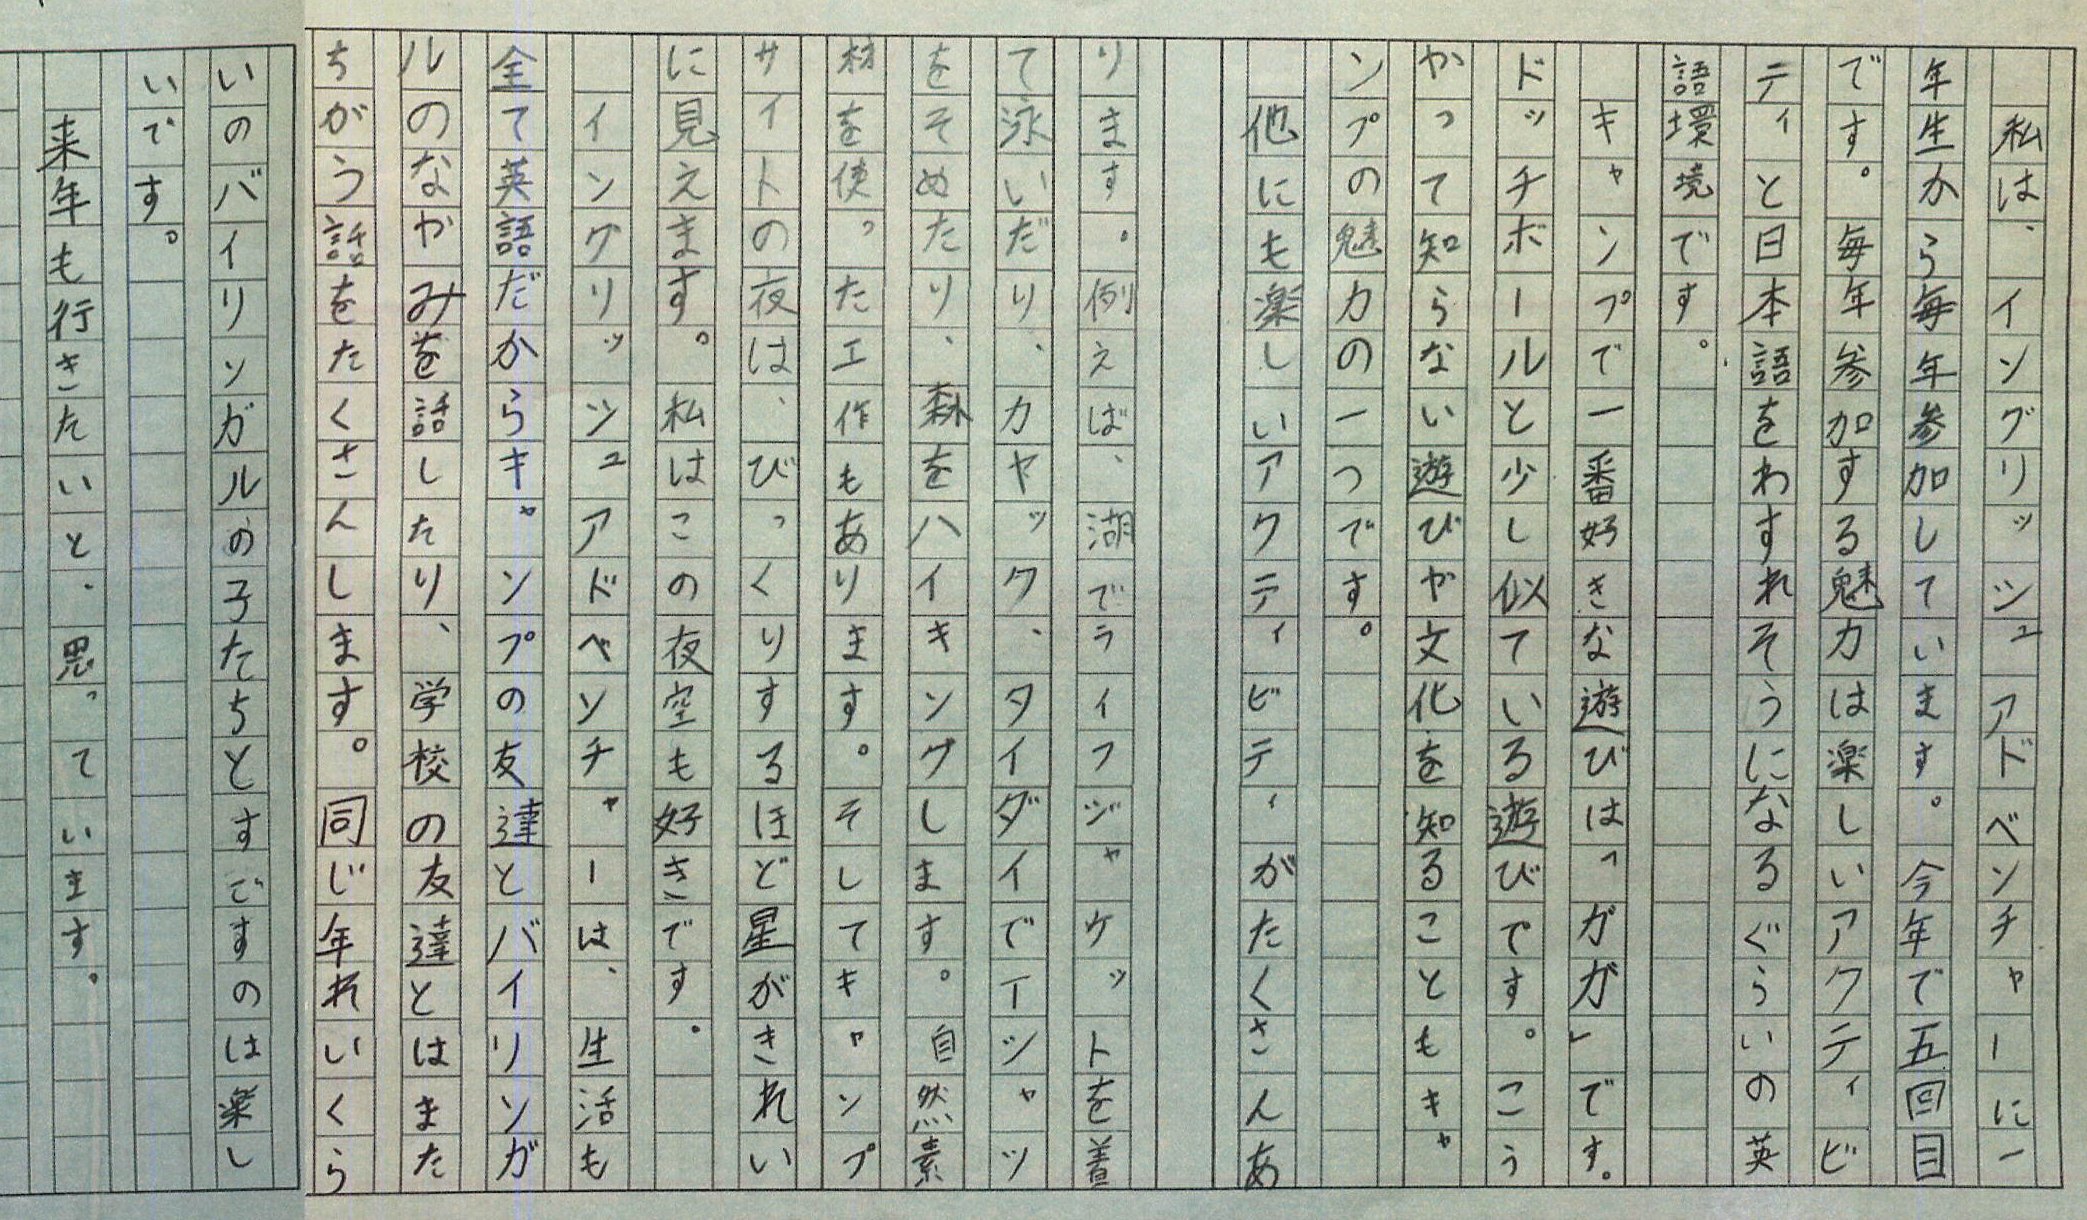 私は、イングリッシュアドベンチャーに一
年生から毎年参加しています。今年で五回目
です。毎年参加する魅力は楽しいアクティビ
ティと日本語をわすれそうになるぐらいの英
語環境です。
キャンプで一番好きな遊びは「ガガ」です。
ドッチボールと少し似ている遊びです。こう
やって知らない遊びや文化を知ることもキャ
ンプの魅力の一つです。
他にも楽しいアクティビティがたくさんあ
ります。例えば、湖でライフジャケットを着
て泳いだり、カヤック、タイダイでTシャツ
をそめたり、森をハイキングします。自然素
材を使った工作もあります。そしてキャンプ
サイトの夜は、びっくりするほど星がきれい
に見えます。私はこの夜空も好きです。
イングリッシュアドベンチャーは、生活も
全て英語だからキャンプの友達とバイリンガ
ルのなやみを話したり、学校の友達とはまた
ちがう話をたくさんします。同じ年れいくら
いのバイリンガルの子たちとすごすのは楽し
いです。
来年も行きたいと、思っています。